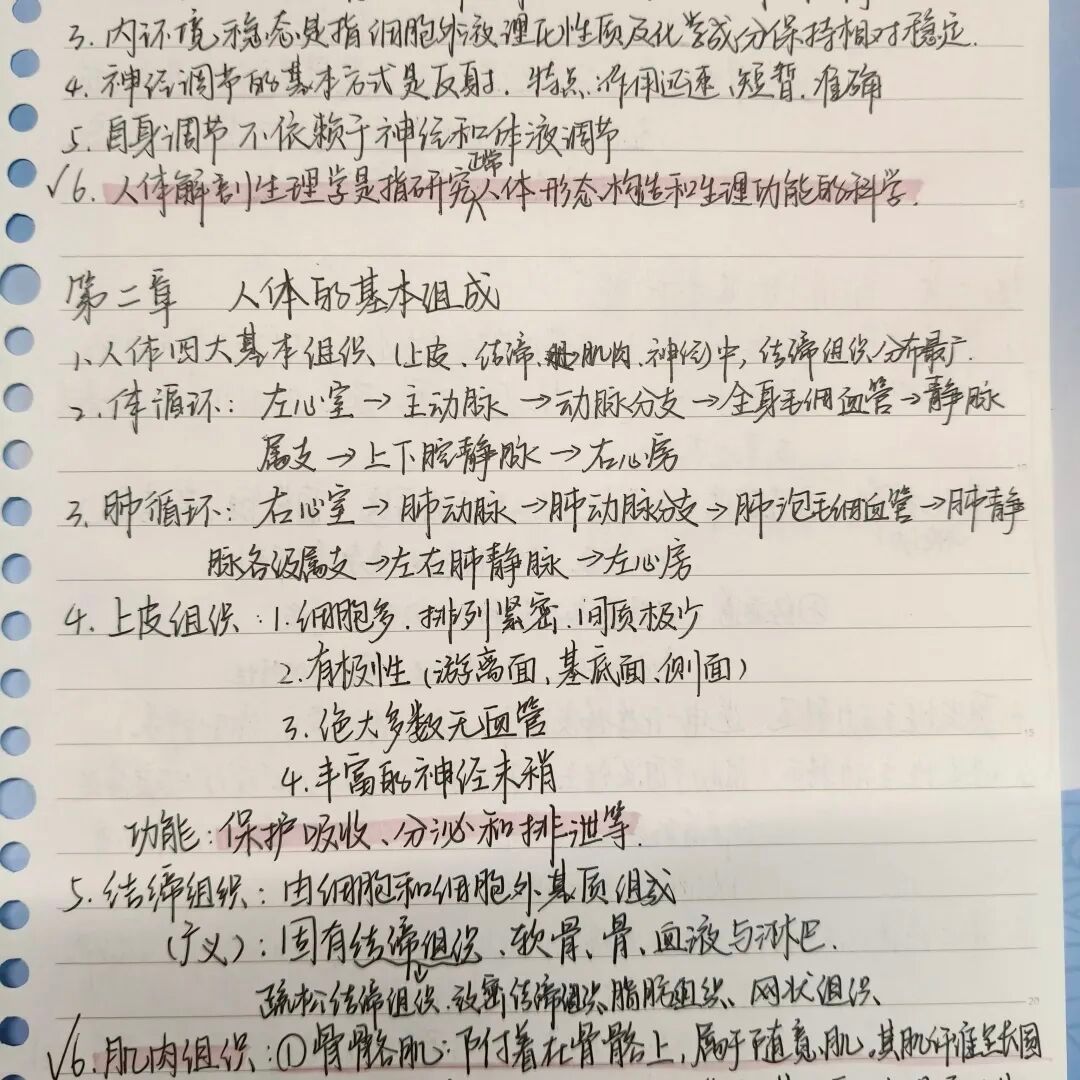 3. 内环境稳态是指细胞外液理化性质及化学成分保持相对稳定.
4. 神经调节的基本方式是反射. 特点:作用迅速、短暂、准确
5. 自身调节不依赖于神经和体液调节
√6. 人体解剖生理学是指研究正常人体形态、构造和生理功能的科学.
第二章 人体的基本组成
1、人体四大基本组织(上皮、结缔、肌肉、神经)中,结缔组织分布最广.
2. 体循环: 左心室→主动脉→动脉分支→全身毛细血管→静脉
属支→上下腔静脉→右心房
3. 肺循环: 右心室→肺动脉→肺动脉分支→肺泡毛细血管→肺静
脉各级属支→左右肺静脉→左心房
4. 上皮组织:1.细胞多、排列紧密、间质极少
2.有极性(游离面、基底面、侧面)
3.绝大多数无血管
4.丰富的神经末稍
功能:保护吸收、分泌和排泄等.
5. 结缔组织:由细胞和细胞外基质组成
(广义):固有结缔组织、软骨、骨、血液与淋巴.
疏松结缔组织、致密结缔组织、脂肪组织、网状组织、
√6. 肌肉组织:①骨骼肌:附着在骨骼上,属于随意肌.其肌纤维呈长圆